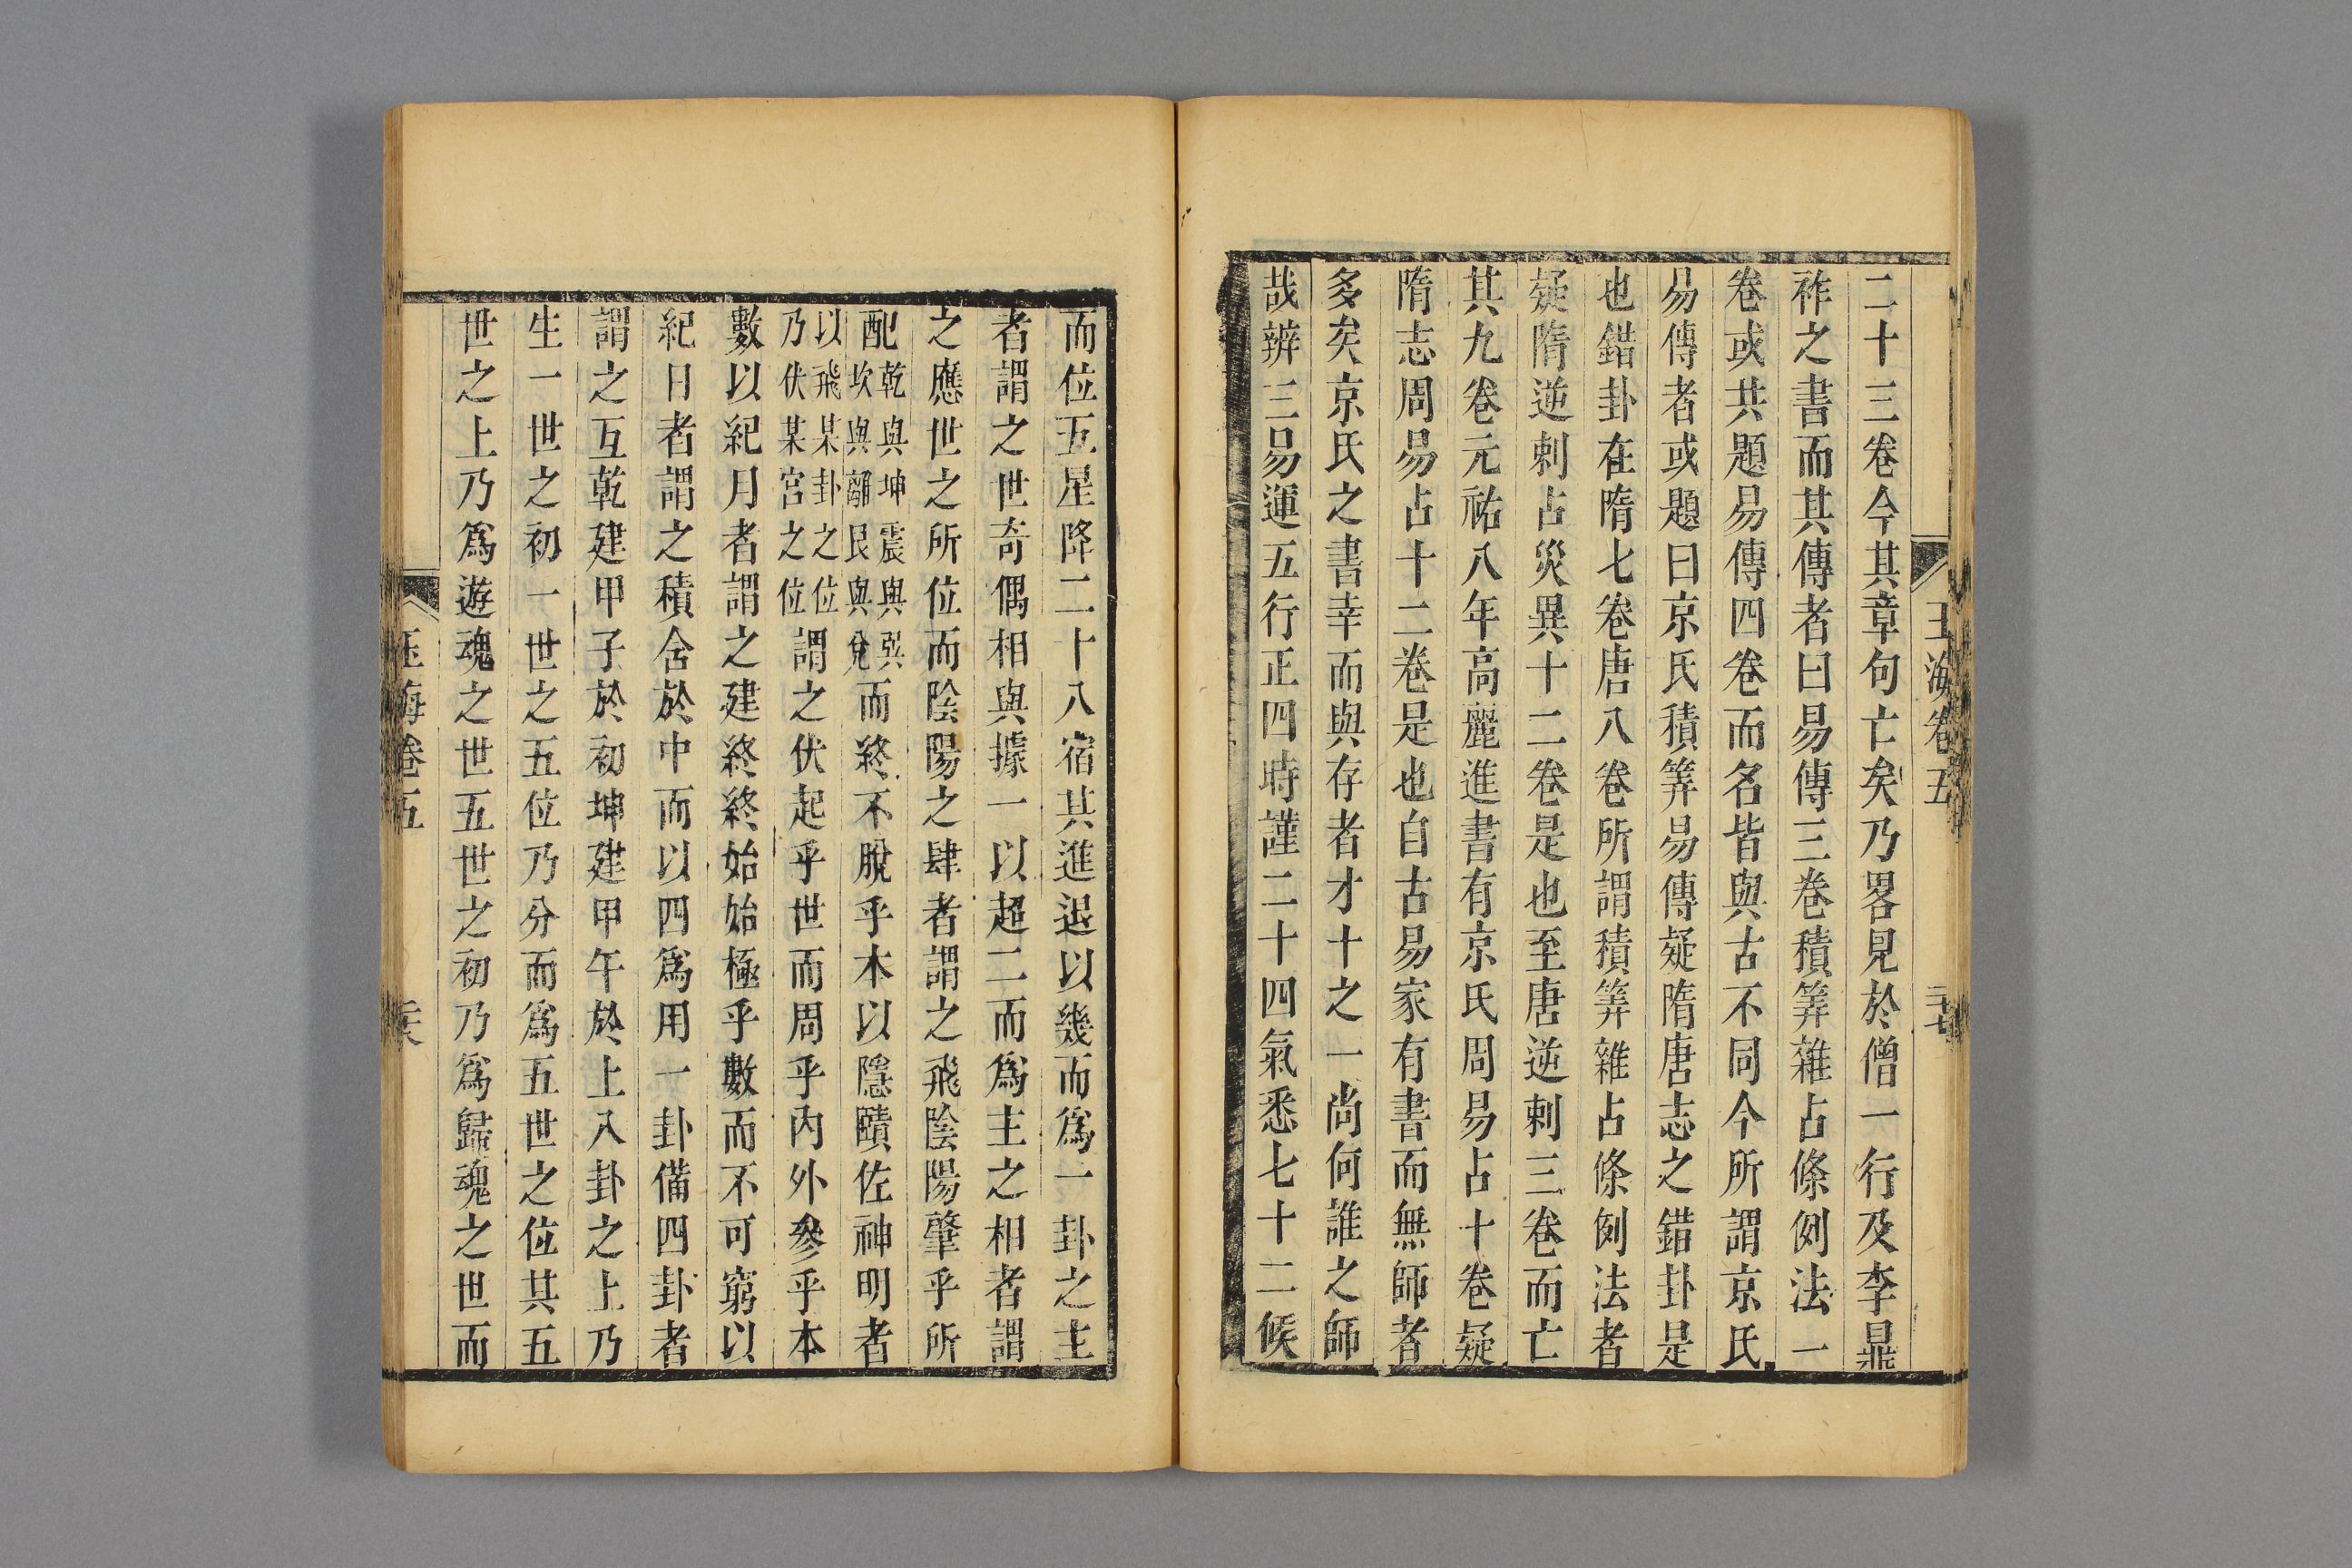 玉海卷五
二十三卷今其章句亡矣乃畧見於僧一行及李鼎
祚之書而其傳者曰易傳三卷積筭雜占條例法一
卷或共題易傳四卷而名皆與古不同今所謂京氏
易傳者或題曰京氏積筭易傳疑隋唐志之錯卦是
也錯卦在隋七卷唐八卷所謂積筭雜占條例法者
疑隋逆刺占災異十二卷是也至唐逆刺三卷而亡
其九卷元祐八年高麗進書有京氏周易占十卷疑
隋志周易占十二卷是也自古易家有書而無師者
多矣京氏之書幸而與存者才十之一尚何誰之師
哉辨三易運五行正四時謹二十四氣悉七十二候
而位五星降二十八宿其進退以幾而爲一卦之主
者謂之世奇偶相與據一以超二而爲主之相者謂
之應世之所位而陰陽之肆者謂之飛陰陽肇乎所
配乾與坤震與巽
坎與離艮與兌而終不脫乎本以隱賾佐神明者
以飛某卦之位
乃伏某宮之位謂之伏起乎世而周乎內外參乎本
數以紀月者謂之建終終始始極乎數而不可窮以
紀日者謂之積舍於中而以四爲用一卦備四卦者
謂之互乾建甲子於初坤建甲午於上八卦之上乃
生一世之初一世之五位乃分而爲五世之位其五
世之上乃爲遊魂之世五世之初乃爲歸魂之世而
玉海卷五